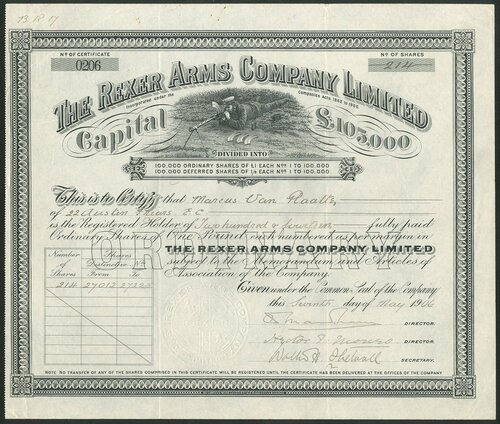 13 R 17
No OF CERTIFICATE
0206
No OF SHARES
214
THE REXER ARMS COMPANY LIMITED
Incorporated under the Companies Acts 1862 to 1900
Capital £105,000
DIVIDED INTO
100,000 ORDINARY SHARES OF £1 EACH Nos 1 TO 100,000
100,000 DEFERRED SHARES OF 1/- EACH Nos 1 TO 100,000
This is to Certify that Marcus Van Raalte
of 22 Austin Friars E C
is the Registered Holder of Two hundred & fourteen fully paid
Ordinary Shares of One Pound each numbered as per margin in
THE REXER ARMS COMPANY LIMITED
subject to the Memorandum and Articles of
Association of the Company.
Number of Shares
Shares Distinctive Nos
From To
214 27012
Given under the Common Seal of the Company
this Seventh day of May 1906
DIRECTOR.
DIRECTOR.
SECRETARY.
NOTE NO TRANSFER OF ANY OF THE SHARES COMPRISED IN THIS CERTIFICATE WILL BE REGISTERED UNTIL THE CERTIFICATE HAS BEEN DELIVERED AT THE OFFICES OF THE COMPANY